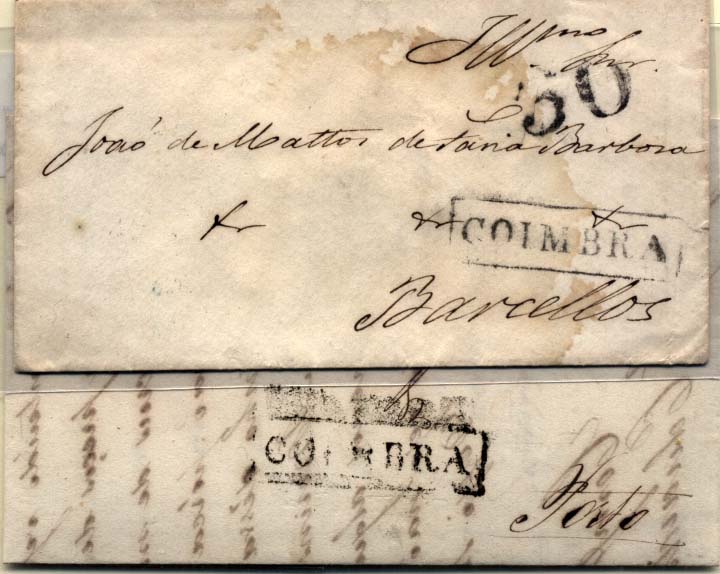 Illmo. Snr.
50
João de Mattos de Faria Barbosa
&c &c &c
COIMBRA
Barcellos
COIMBRA
Porto